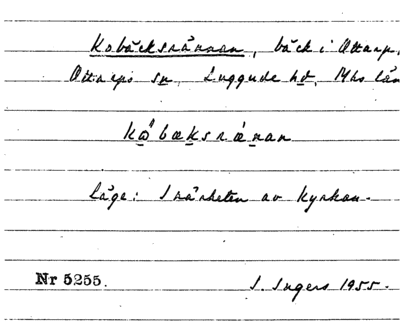 Kobäcksrännan, bäck i Ottarp,
Ottarps sn, Luggude hd, Mhs län
kǻbæksrænan
Läge: I närheten av kyrkan.
Nr 5255. I. Ingers 1955.